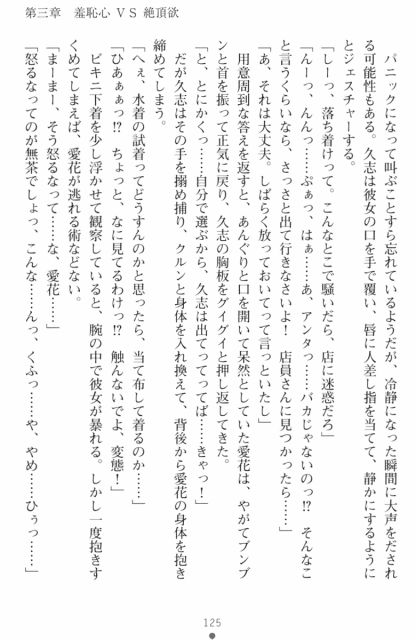 第三章　羞恥心 VS 絶頂欲
パニックになって叫ぶことすら忘れているようだが、冷静になった瞬間に大声をだされ
る可能性もある。久志は彼女の口を手で覆い、唇に人差し指を当てて、静かにするように
とジェスチャーする。
「しーっ、落ち着けって。こんなとこで騒いだら、店に迷惑だろ」
「んーっ、んんっ……ぷぁっ、はぁ……あ、アンタっ……バカじゃないのっ!?　そんなこ
と言うくらいなら、さっさと出て行きなさいよ!　店員さんに見つかったら……」
「あ、それは大丈夫。しばらく放っておいてって言っといたし」
用意周到な答えを返すと、あんぐりと口を開いて呆然としていた愛花は、やがてブンブ
ンと首を振って正気に戻り、久志の胸板をグイグイと押し返してきた。
「と、とにかくっ……自分で選ぶから、久志は出てってってば……きゃっ!」
だが久志はその手を搦め捕り、クルンと身体を入れ換えて、背後から愛花の身体を抱き
締めてしまう。
「へぇ、水着の試着ってどうすんのかと思ったら、当て布して着るのか……」
「ひあぁぁっ!?　ちょっと、なに見てるわけっ!?　触んないでよ、変態!」
ビキニ下着を少し浮かせて観察していると、腕の中で彼女が暴れる。しかし一度抱きす
くめてしまえば、愛花が逃れる術などない。
「まーまー、そう怒るなって……な、愛花……」
「怒るなってのが無茶でしょっ、こんな……んっ、くふっ……や、やめ……ひぅっ……」
125